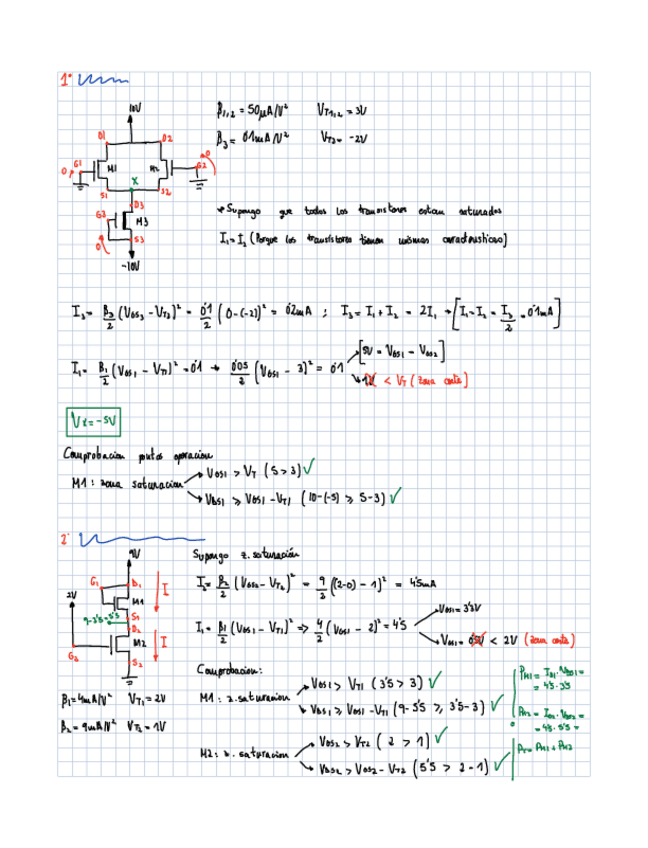 1°
10V
β1,2 = 50μA/V² VT1,2 = 3V
β3 = 0'1mA/V² VT3 = -2V
D1 D2
0 G1 M1 M2 G2 0
S1 X S2
D3
G3 M3
0 S3
-10V
Supongo que todos los transistores estan saturados
I1 = I2 (Porque los transistores tienen mismas caracteristicas)
I3 = β3/2 (VGS3 - VT3)² = 0'1/2 (0-(-2))² = 0'2mA ; I3 = I1 + I2 = 2I1 → [I1 = I2 = I3/2 = 0'1mA]
I1 = β1/2 (VGS1 - VT1)² = 0'1 → 0'05/2 (VGS1 - 3)² = 0'1
[5V = VGS1 = VGS2]
1V < VT (zona corte)
Vx = -5V
Comprobacion puntos operacion
M1: zona saturacion
VGS1 > VT (5 > 3) ✓
VDS1 ≥ VGS1 - VT1 (10-(-5) ≥ 5-3) ✓
2°
9V
G1 D1 I
M1
2V 9-3'5=5'5 S1
D2
M2 I
G2 S2
β1 = 4mA/V² VT1 = 2V
β2 = 9mA/V² VT2 = 1V
Supongo z. saturación
I2 = β2/2 (VGS2 - VT2)² = 9/2 ((2-0) - 1)² = 4'5mA
I1 = β1/2 (VGS1 - VT1)² => 4/2 (VGS1 - 2)² = 4'5
VGS1 = 3'5V
VGS1 = 0'5V < 2V (zona corte)
Comprobacion:
M1: z. saturacion
VGS1 > VT1 (3'5 > 3) ✓
VDS1 ≥ VGS1 - VT1 (9-5'5 ≥ 3'5-3) ✓
M2: z. saturacion
VGS2 > VT2 (2 > 1) ✓
VDS2 > VGS2 - VT2 (5'5 > 2-1) ✓
PM1 = ID1·VDS1 =
= 4'5·3'5
PM2 = ID2·VDS2 =
= 4'5·5'5 =
PT = PM1 + PM2